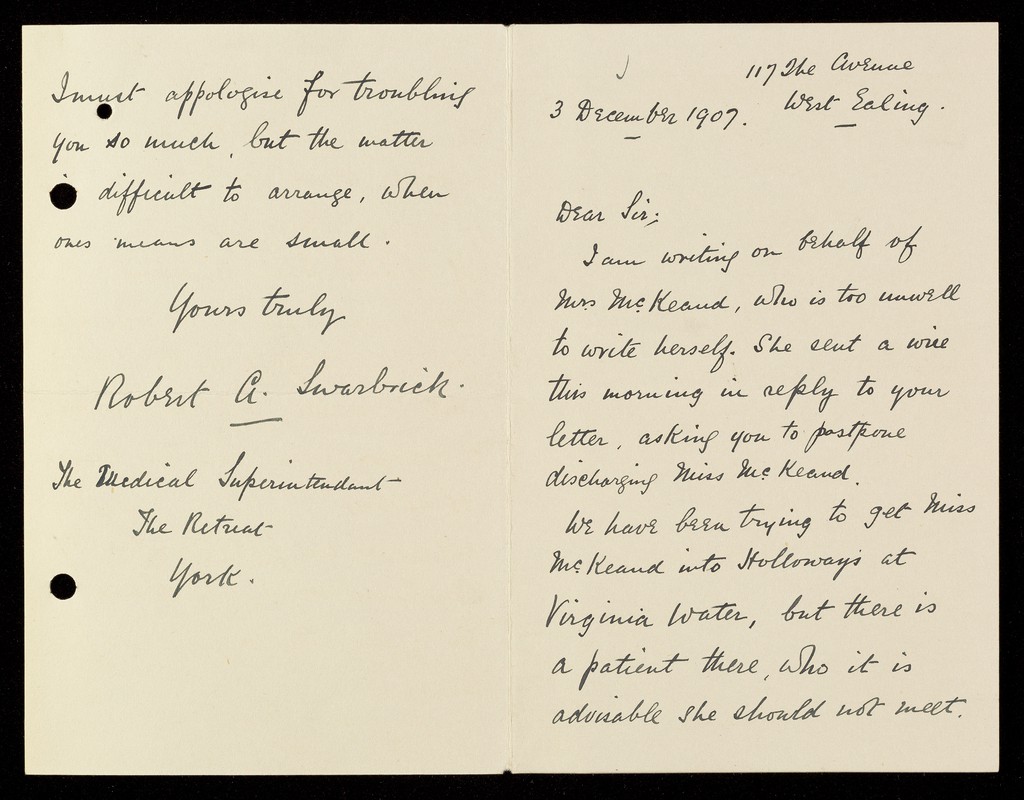 117 The Avenue
West Ealing.
3 December 1907.
Dear Sir;
I am writing on behalf of
Mrs McKeand, who is too unwell
to write herself. She sent a wire
this morning in reply to your
letter, asking you to postpone
discharging Miss McKeand.
We have been trying to get Miss
McKeand into Holloways at
Virginia Water, but there is
a patient there, who it is
advisable she should not meet.
I must appologise for troubling
you so much, but the matter
is difficult to arrange, when
ones means are small.
Yours truly
Robert A. Swarbrick.
The Medical Superintendant
The Retreat
York.